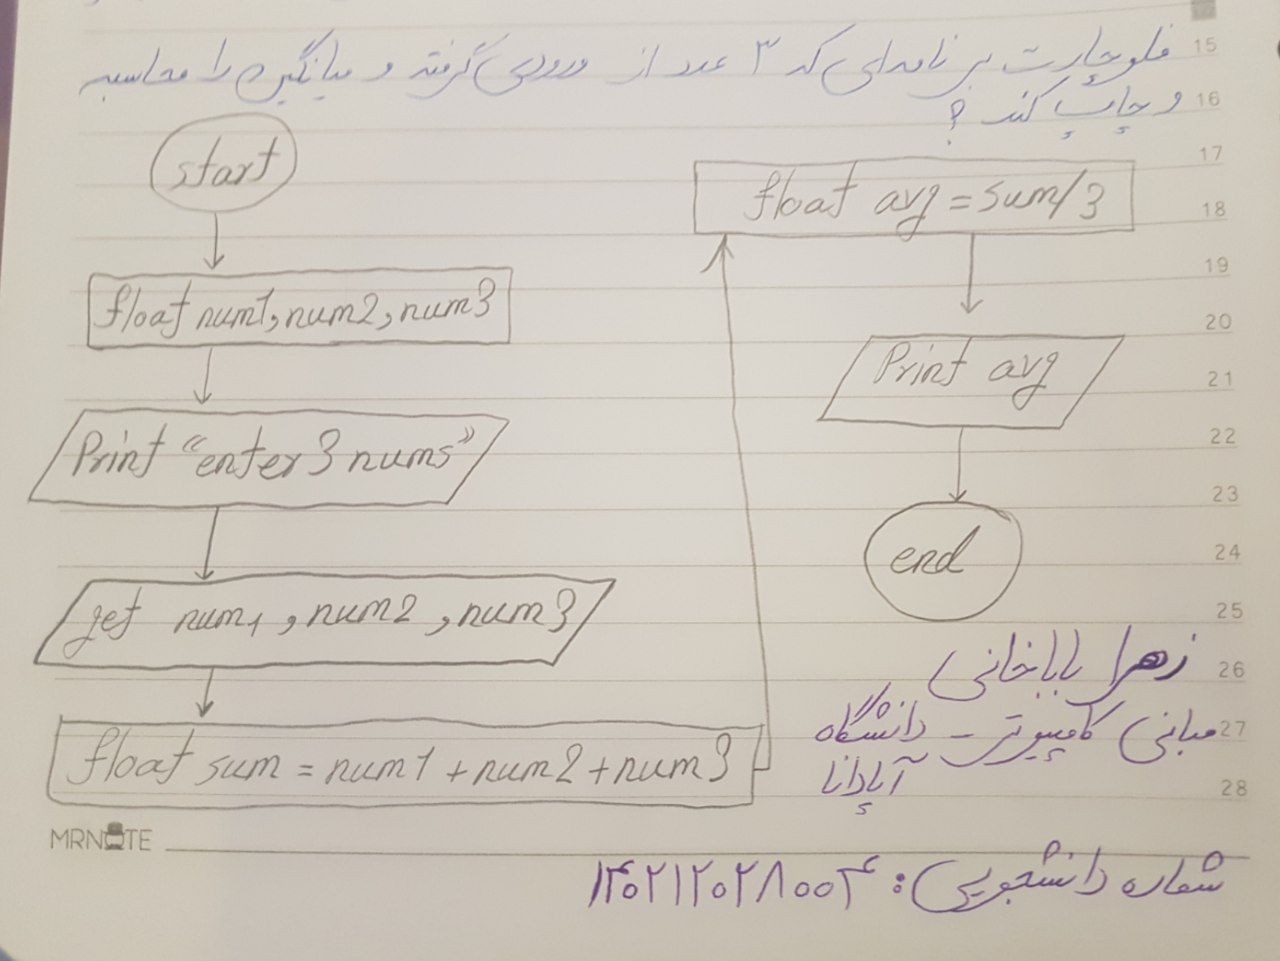 فلوچارت برنامه‌ای که ۳ عدد از ورودی گرفته و میانگین را محاسبه
و چاپ کند ؟
start
float num1, num2, num3
Print "enter 3 nums"
get num1, num2, num3
float sum = num1 + num2 + num3
float avg = sum/3
Print avg
end
زهرا باباخانی
مبانی کامپیوتر - دانشگاه
آپادانا
شماره دانشجویی: ۱۴۰۲۱۲۰۲۸۰۰۴
MRNOTE
15
16
17
18
19
20
21
22
23
24
25
26
27
28